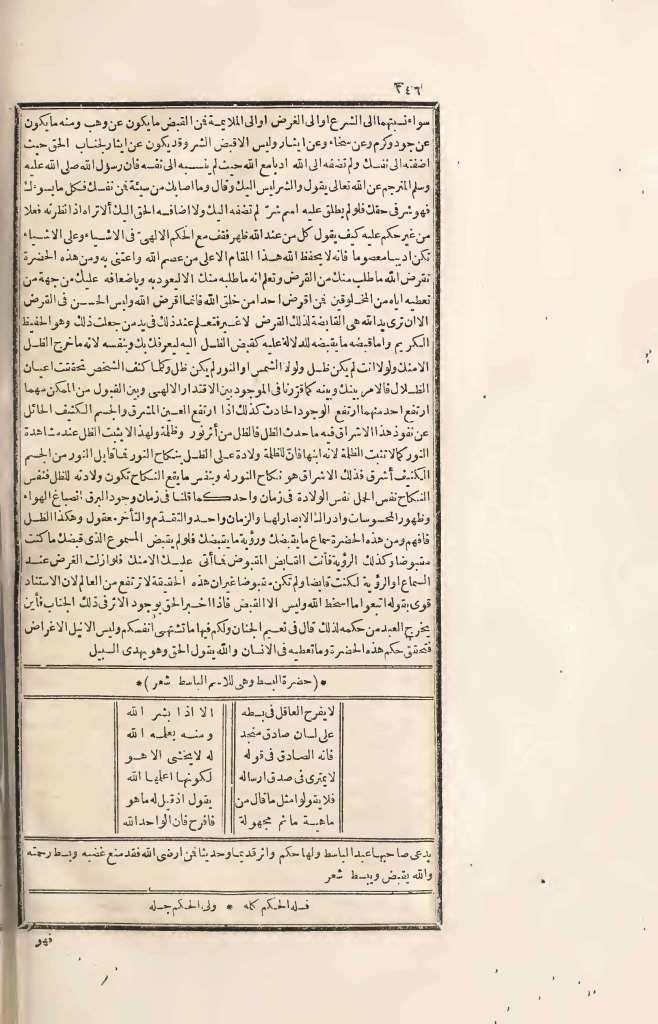 ٣٤٦
سواء نسبتهما الى الشرع اوالى الغرض اوالى الملايمة فمن القبض ما يكون عن وهب ومنه ما يكون
عن جود وكرم وعن سخاء وعن ايثار وليس الا قبض الشر وقد يكون عن ايثار لجناب الحق حيث
اضفته الى نفسك ولم تضفه الى الله ادبا مع الله حيث لم ينسبه الى نفسه فان رسول الله صلى الله عليه
وسلم المترجم عن الله تعالى يقول والشر ليس اليك وقال وما اصابك من سيئة فمن نفسك فكل ما يسوءك
فهو شر فى حقك فلو لم يطلق عليه اسم شر لم تضفه اليك ولا اضافه الحق اليك ألا تراه اذا نظرته فعلا
من غير حكم عليه كيف يقول كل من عند الله فظهر فقف مع الحكم الالهى فى الاشياء وعلى الاشياء
تكن اديبا معصوما فانه لا يحفظ الله هذا المقام الاعلى من عصم الله واعتنى به ومن هذه الحضرة
تقرض الله ما طلب منك من القرض وتعلم انه ما طلبه منك الا ليعود به وباضعافه عليك من جهة من
تعطيه اياه من المخلوقين فمن اقرض احدا من خلق الله فانما اقرض الله وليس الحسن فى القرض
الا ان ترى يد الله هى القابضة لذلك القرض لا غير فتعلم عند ذلك فى يد من جعلت ذلك وهو الحفيظ
الكريم واما قبضه ما يقبضه للدلالة عليه كقبض الظل اليه ليعرفك بك وبنفسه لانه ما خرج الظل
الا منك ولولا انت لم يكن ظل ولولا الشمس او النور لم يكن ظل وكلما كثف الشخص تحققت اعيان
الظلال فالامر بينك وبينه كما قررنا فى الموجود بين الاقتدار الالهى وبين القبول من الممكن مهما
ارتفع احد منهما ارتفع الوجود الحادث كذلك اذا ارتفع العين المشرق والجسم الكثيف الحائل
عن نفوذ هذا الاشراق فيه ما حدث الظل فالظل من أثر نور وظلمة ولهذا لا يثبت الظل عند مشاهدة
النور كما لا تثبت الظلمة لانه ابنها فان للظلمة ولادة على الظل بنكاح النور فما قابل النور من الجسم
الكثيف أشرق فذلك الاشراق هو نكاح النور له وبنفس ما يقع النكاح تكون ولادته للظل فنفس
النكاح نفس الحمل نفس الولادة فى زمان واحد كما قلنا فى زمان وجود البرق انصباغ الهواء
وظهور المحسوسات وادراك الابصار لها والزمان واحد والتقدم والتأخر معقول وهكذا الظل
فافهم ومن هذه الحضرة سماع ما يقبضك ورؤية ما يقبضك فلو لم يقبض المسموع الذى قبضك ما كنت
مقبوضا وكذلك الرؤية فأنت القابض المقبوض فما أتى عليك الا منك فلو زالت الغرض عند
السماع او الرؤية لكنت قابضا ولم تكن مقبوضا غير ان هذه الحقيقة لا ترتفع من العالم لان الاستناد
قوى بقوله اتبعوا ما اسخط الله وليس الا القبض فاذا اخبر الحق بوجود الاثر فى ذلك الجناب فأين
يخرج العبد من حكمه لذلك قال فى نعيم الجنان ولكم فيها ما تشتهى أنفسكم وليس الا نيل الاغراض
فتحقق حكم هذه الحضرة وما تعطيه فى الانسان والله يقول الحق وهو يهدى السبيل
* (حضرة البسط وهى للاسم الباسط شعر) *
لا يفرح العاقل فى بسطه الا اذا بشر الله
على لسان صادق منجد وسنه بعلمه الله
فانه الصادق فى قوله له لا يخشى الا هو
لا يمترى فى صدق ارساله لكونها اعلمها الله
فلا يقولوا مثل ما قال من يقول اذ قيل له ما هو
ماهية ما ثم مجهولة فافرح فان الواحد الله
يدعى صاحبها عبد الباسط ولها حكم واثر قديما وحديثا فمن ارضى الله فقد منع غضبه وبسط رحمته
والله يقبض ويبسط شعر
فله الحكم كله * ولى الحكم جله
فهو